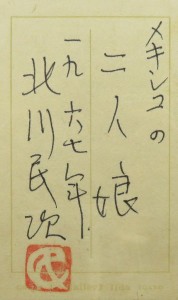 メキシコの
二人娘
一九六七年
北川民次